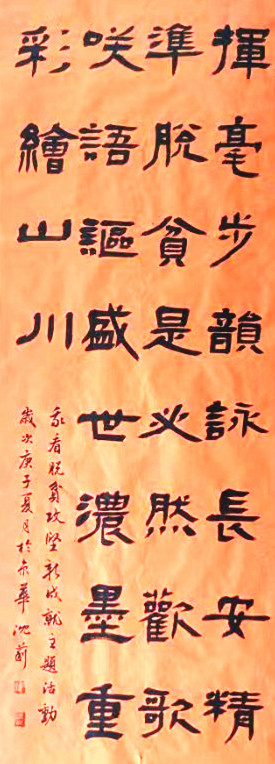 揮毫步韻詠長安精
準脫貧是必然歡歌
咲語謳盛世濃墨重
彩繪山川
我看脱貧攻堅新成就主題活動
歲次庚子夏月於京華沈莉